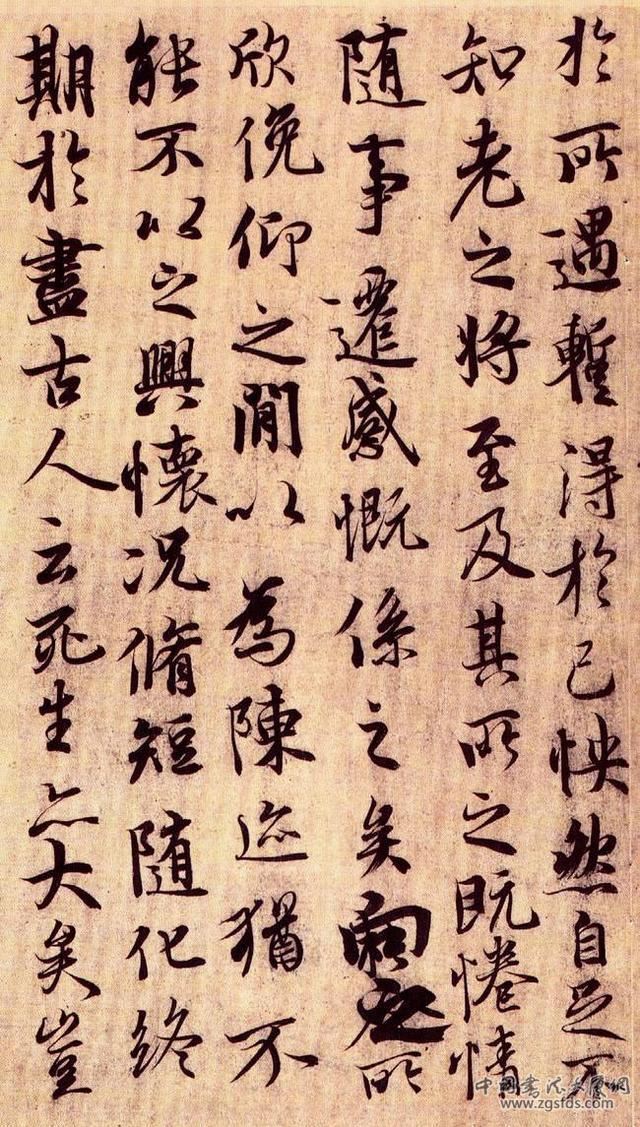 於所遇暫得於己怏然自足不
知老之將至及其所之既惓情
隨事遷感慨係之矣向之所
欣俛仰之閒以為陳迹猶不
能不以之興懷況脩短隨化終
期於盡古人云死生亦大矣豈
中国书法大展网
www.zgsfds.com